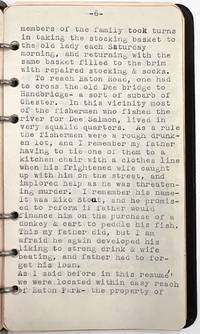 -6-
members of the family took turns
in taking the stocking basket to
the old lady each Saturday
morning, and returning with the
same basket filled to the brim
with repaired stocking & socks.
To reach Eaton Road, one had
to cross the old Dee bridge to
Handbridge- a sort of suburb of
Chester. In this vicinity most
of the fishermen who fished the
river for Dee Salmon, lived in
very squalic quarters. As a rule
the fishermen were a rough drunk-
en lot, and I remember my father
having to tie one of them to a
kitchen chair with a clothes line
when his frightened wife caught
up with him on the street, and
implored help as he was threaten-
ing murder. I remember his name-
It was Mike Stout, and he promis-
ed to reform if father would
finance him on the purchase of a
donkey & cart to peddle his fish.
This my father did, but I am
afraid he again developed his
liking to strong drink & wife
beating, and father had to for-
get his loan.
As I said before in this resume'
we were located within easy reach
of Eaton Park- the property of